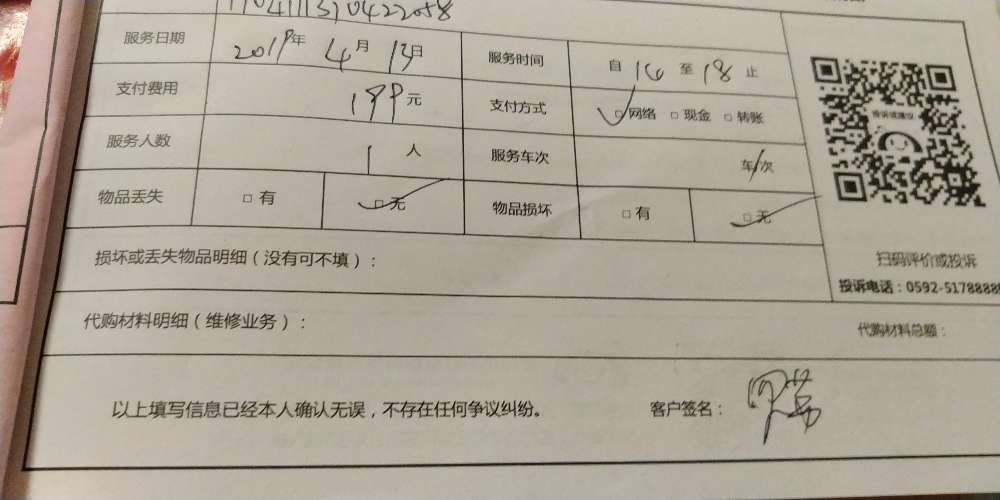 服务日期 2019年 4月 13日 服务时间 自 16 至 18 止
支付费用 199元 支付方式 ☑网络 □现金 □转账
服务人数 1 人 服务车次 / 车次
投诉或建议
物品丢失 □有 ☑无 物品损坏 □有 ☑无
损坏或丢失物品明细（没有可不填）：
扫码评价或投诉
投诉电话：0592-5178888
代购材料明细（维修业务）： 代购材料总额：
以上填写信息已经本人确认无误，不存在任何争议纠纷。 客户签名：